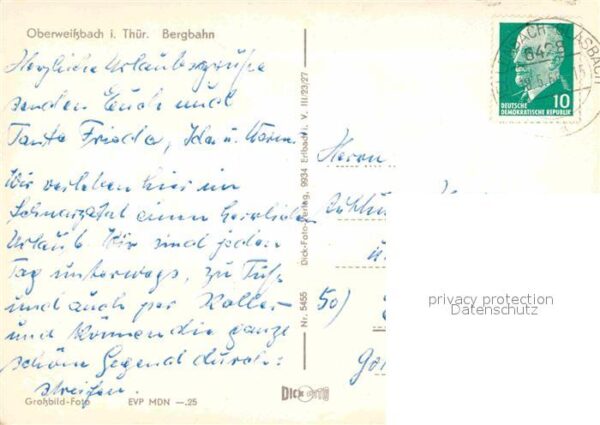 Oberweißbach i. Thür. Bergbahn
Herzliche Urlaubsgrüße
senden Euch und
Tante Frieda, Ida u.
Wir verleben hier im
Schwarzatal einen herrlichen
Urlaub. Wir sind jeden
Tag unterwegs, zu Fuß
und auch per Roller
und können die ganze
schöne Gegend durch-
streifen.
Großbild-Foto EVP MDN —.25
Nr. 5455 Dick-Foto-Verlag, 9934 Erlbach i. V. III/23/27
DICK FOTO
Herrn
50)
6428
DEUTSCHE
DEMOKRATISCHE REPUBLIK
10
privacy protection
Datenschutz